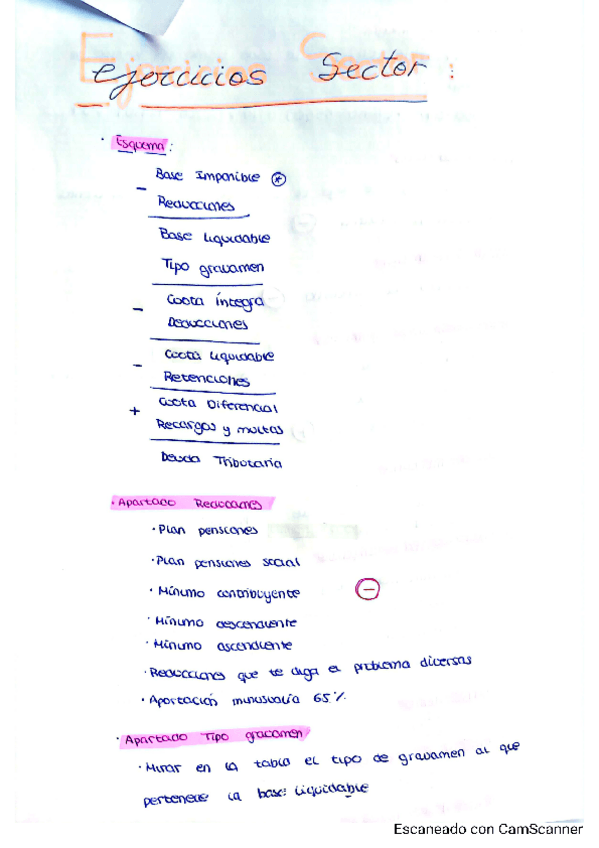 Ejercicios Sector:
· Esquema:
Base Imponible *
- Reducciones
Base Liquidable
Tipo gravamen
Cuota íntegra
- Deducciones
Cuota Liquidable
- Retenciones
Cuota Diferencial
+ Recargos y multas
Deuda Tributaria
· Apartado Reducciones
· Plan pensiones
· Plan pensiones social
· Mínimo contribuyente -
· Mínimo descendiente
· Mínimo ascendiente
· Reducciones que te diga el problema diversas
· Aportación minusvalía 65%
· Apartado Tipo gravamen
· Mirar en la tabla el tipo de gravamen al que
pertenece la base liquidable
Escaneado con CamScanner